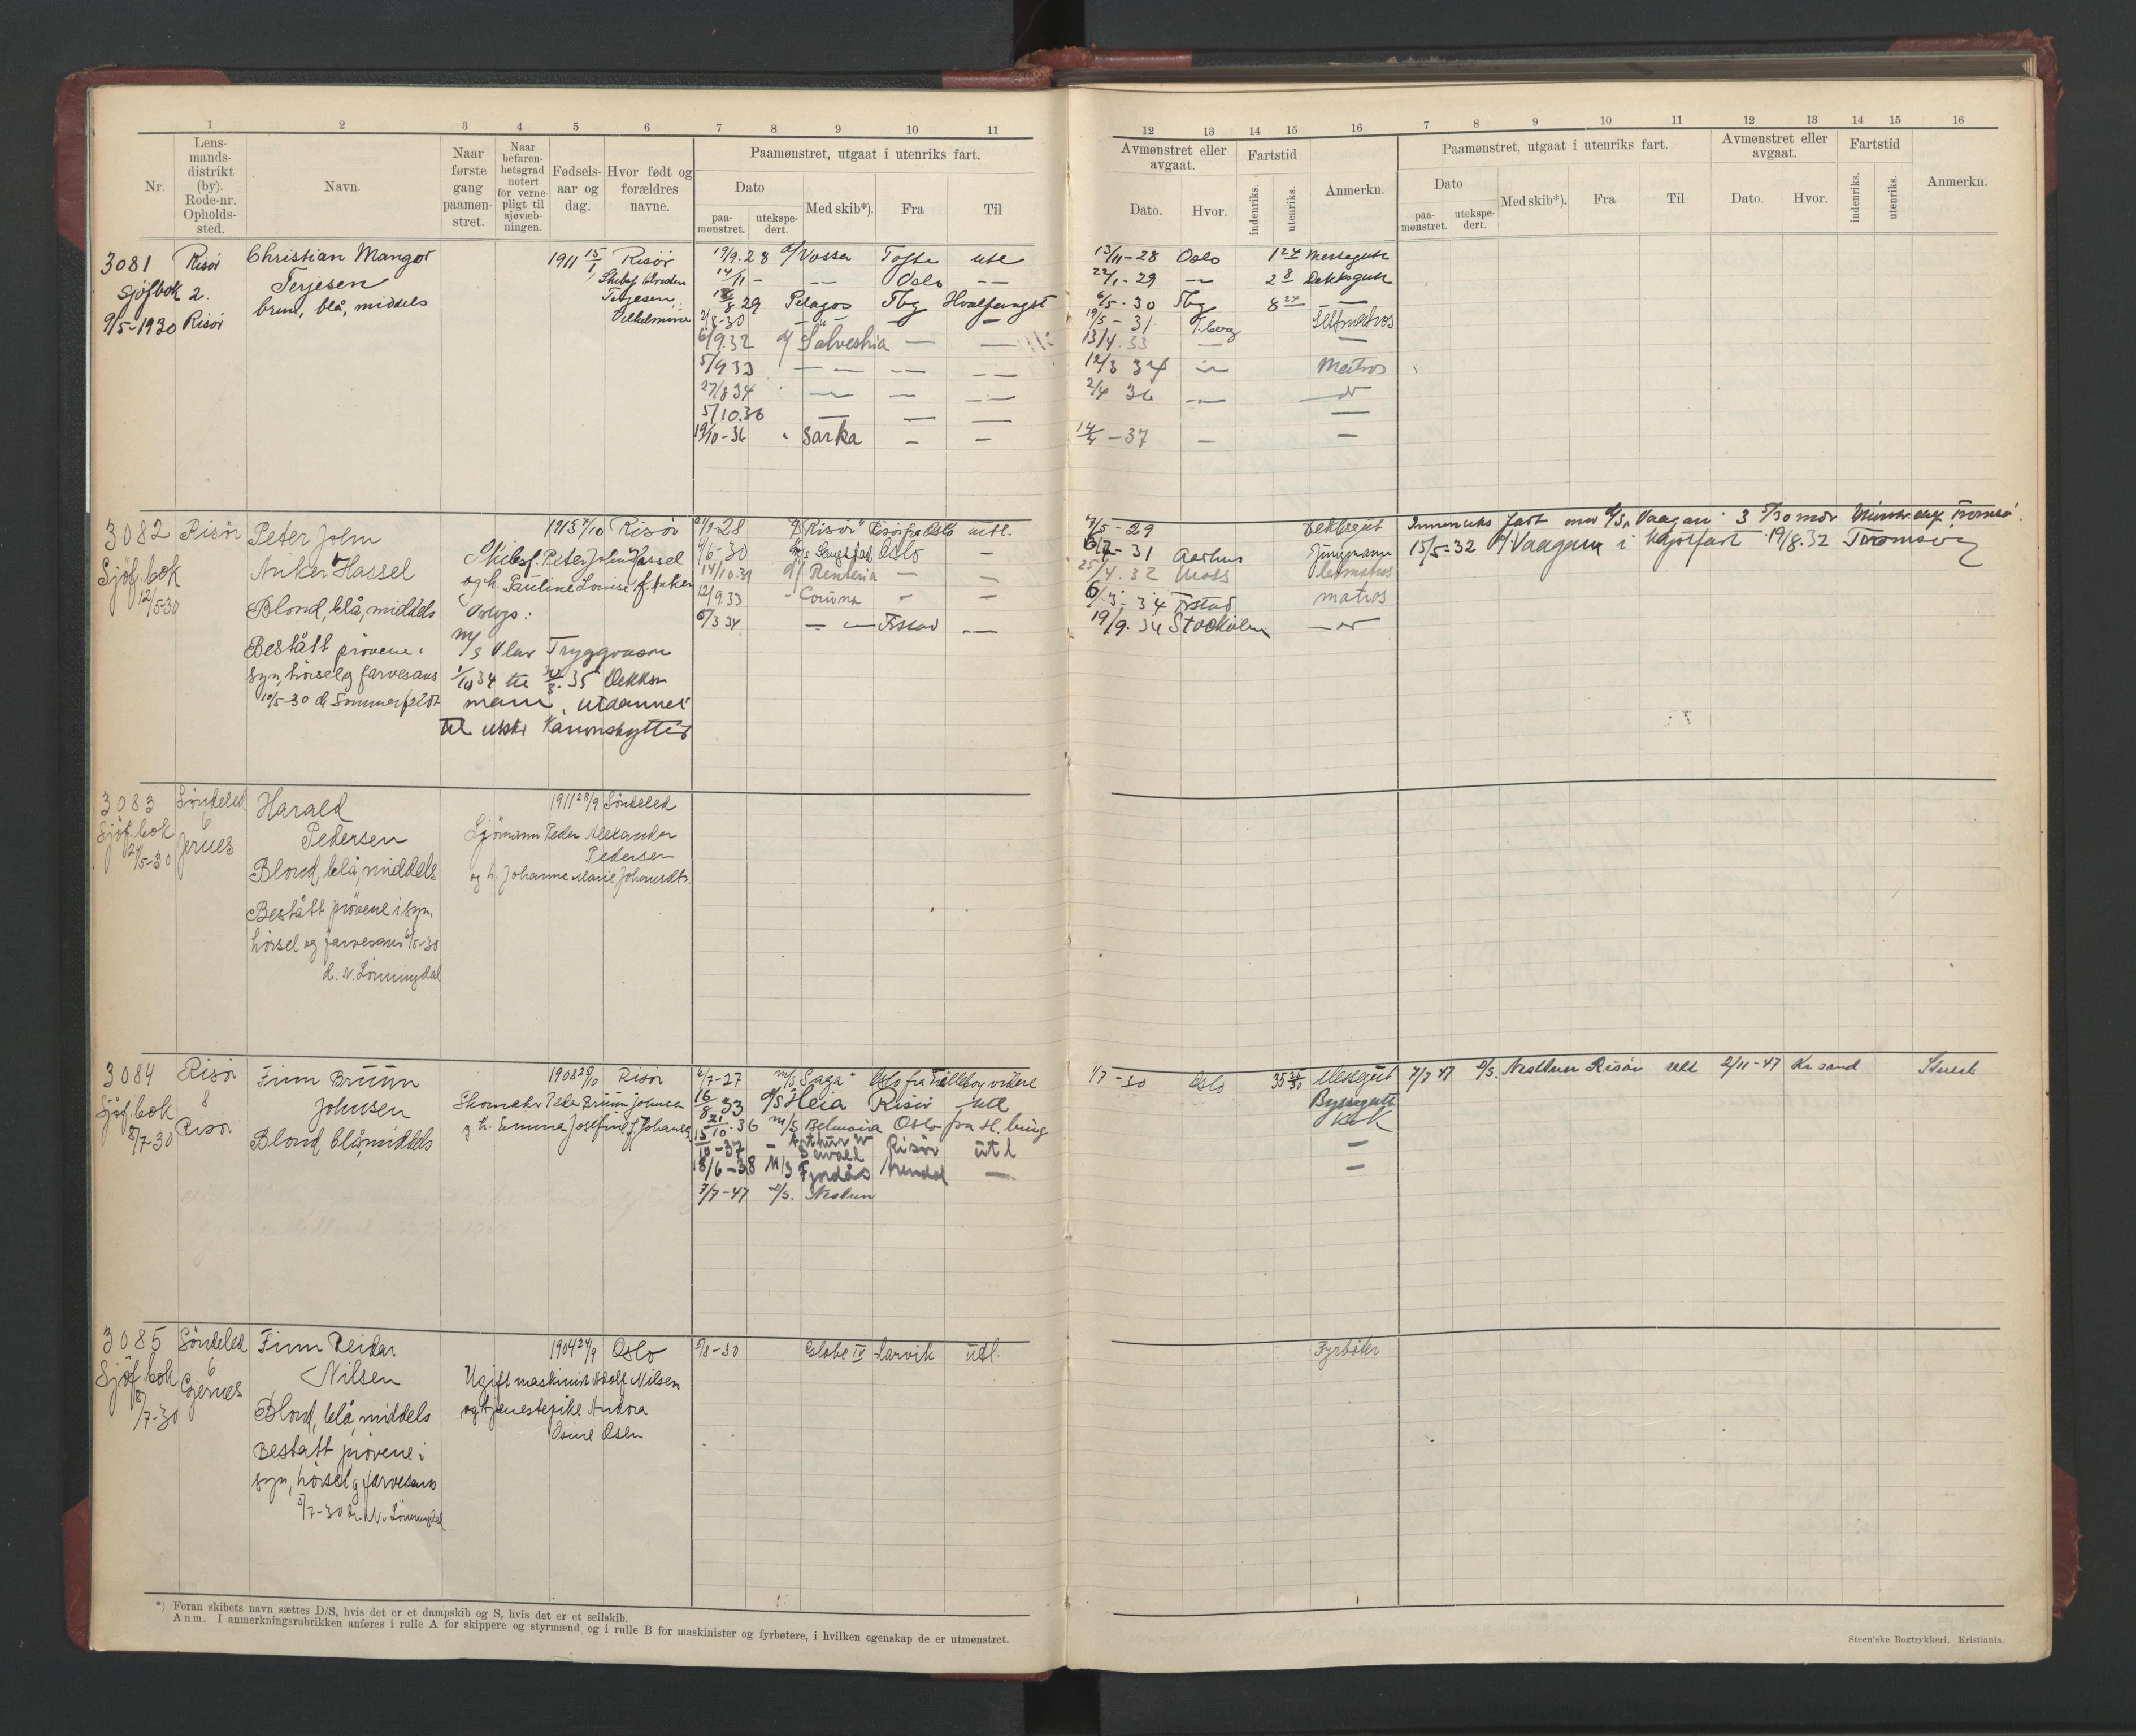 1 2 3 4 5 6 7 8 9 10 11
Nr.
Lens-
mands-
distrikt
(by).
Rode-nr.
Opholds-
sted.
Navn.
Naar
første
gang
paamøn-
stret.
Naar
befaren-
hetsgrad
notert
for verne-
pligt til
sjøvæb-
ningen.
Fødsels-
aar og
dag.
Hvor født og
forældres
navne.
Paamønstret, utgaat i utenriks fart.
Dato
paa-
mønstret.
utekspe-
dert.
Med skib*).
Fra
Til
12 13 14 15 16 7 8 9 10 11 12 13 14 15 16
Avmønstret eller
avgaat.
Dato.
Hvor.
Fartstid
indenriks.
utenriks.
Anmerkn.
Paamønstret, utgaat i utenriks fart.
Dato
paa-
mønstret.
utekspe-
dert.
Med skib*).
Fra
Til
Avmønstret eller
avgaat.
Dato.
Hvor.
Fartstid
indenriks.
utenriks.
Anmerkn.
3081 Risør Christian Mangor 1911 15/1 Risør
Sjøfbok 2. Terjesen
9/5-1930 Risør brun, blå, middels
Terjesen
Vilhelmine
19/9.28 Vossa Tofte utl 13/11-28 Oslo Messegutt
14/11 - — Oslo — 22/1-29 — 2 8 Dekksgutt
29 Pelagos Tbg Hvalfangst 6/5.30 Tbg 8 24 —
2/8-30 — — — 19/5-31 T.berg Lettmatros
6/9.32 Sålvestria — — 13/4.33 — —
5/9 33 — — — 12/3 34 — Matros
27/8 34 — — — 2/4 36 — do
5/10.36 — — — —
19/10-36 Sarka — — 14/4-37 — —
3082 Risør Peter John 1913 7/10 Risør
Sjøf.bok Anker Hassel Skibsf. Peter John Hassel
12/5-30 og h. Pauline Louise f. Anker
Blond, blå, middels Ovlgs:
Bestått prøvene i M/S Olav Tryggvason
syn, hørsel og farvesans 1/10 34 til 35 Dekks
10/5-30 dr Sommerfeldt mann, utdannet
til Kanonskytter
-28 D/S Risør Risør fra Oslo utl. 7/5-29 Dekksgut
4/6-30 M/S Oslo — 6/7-31 Aarhus Jungmann
14/10.31 Renteria — — 25/4.32 Moss lettmatros
12/9.33 - Coruna - — 34 Fr.stad matros
6/3 34 — — Frstad — 19/9.34 Stockholm — do
Innenriks fart med D/S "Vaagan" 3 5/30 mdr
15/5-32 Vaagan i kystfart 19/8.32 Tromsø
3083 Søndeled Harald 1911 29/9 Søndeled
Sjøf.bok 6 Pedersen Sjømann Peder Alexander
-30 Jernes Pedersen
Blond, blå, middels og h. Johanne Marie Johansdtr.
Bestått prøvene i syn,
hørsel og farvesans 6/5-30
dr. N. Lønningdal
3084 Risør Finn Bruun 1908 29/10 Risør
Sjøf.bok 8 Johnsen Skomaker Peder Bruun Johnsen
8/7-30 Risør og h. Emma Josefine f. Johansen
Blond, blå, middels
6/7-27 M/S "Saga" Oslo fra og videre 1/7-30 Oslo Messegut
16/8 33 D/S Heia Risør utl Byssegutt
21/10.36 M/S Belmoira Oslo fra Kokk
15/10-37 — Arthur W Sewall Risør utl —
18/6-38 M/S Fjordås Arendal — —
7/7-47 D/S. Nesttun
7/7 47 D/S. Nesttun Risør utl 2/11-47 Kr.sand Stuert
3085 Søndeled Finn Reidar 1904 24/9 Oslo
Sjøf.bok 6 Nilsen Ugift maskinist Adolf Nilsen
8/7-30 Gjernes og tjenestepike Andora
Blond, blå, middels Osine Olsen
Bestått prøvene i
syn, hørsel og farvesans
5/7-30 Dr. N. Lønningdal
5/8-30 Globe IV Larvik utl. Fyrbøter
*) Foran skibets navn sættes D/S, hvis det er et dampskib og S, hvis det er et seilskib.
Anm. I anmerkningsrubrikken anføres i rulle A for skippere og styrmænd og i rulle B for maskinister og fyrbøtere, i hvilken egenskap de er utmønstret.
Steen'ske Bogtrykkeri. Kristiania.